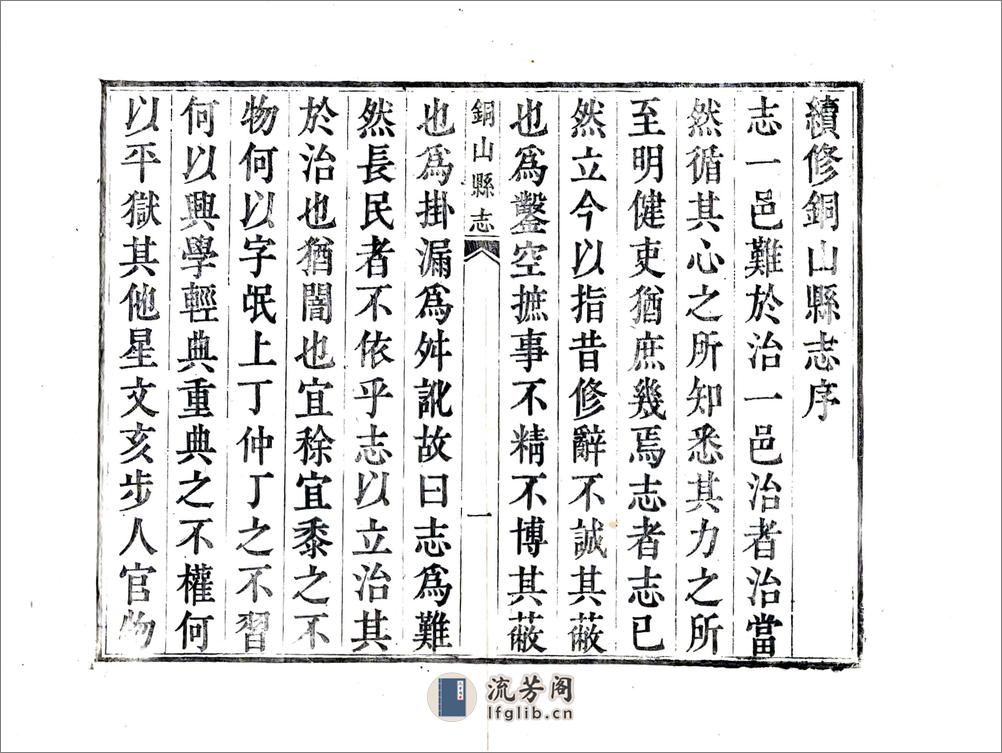 續修銅山縣志序
志一邑難於治一邑治者治當
然循其心之所知悉其力之所
至明健吏猶庶幾焉志者志已
然立今以指昔修辭不誠其蔽
也爲鑿空摭事不精不博其蔽
銅山縣志
一
也爲掛漏爲舛訛故曰志爲難
然長民者不依乎志以立治其
於治也猶闇也宜稌宜黍之不
物何以字氓上丁仲丁之不習
何以興學輕典重典之不權何
以平獄其他星文亥步人官物
流芳阁
lfglib.cn